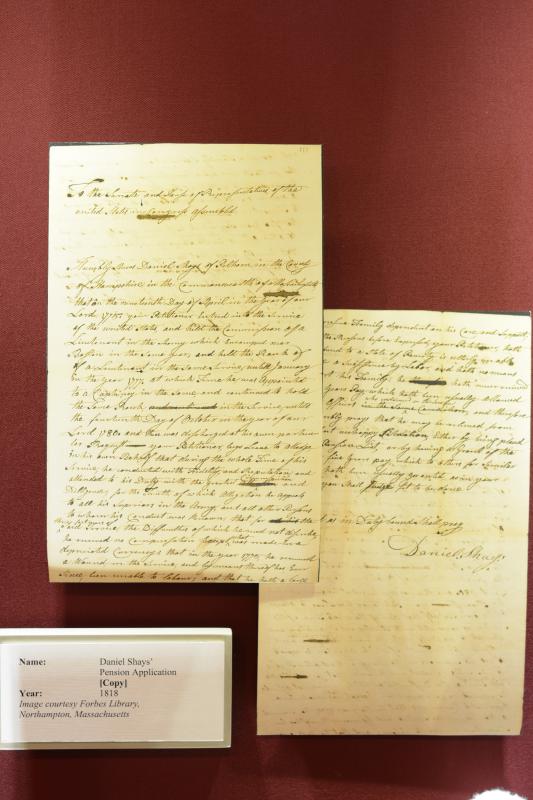 To the Senate and House of Representatives of the
united States in Congress assembled
Humbly shews Daniel Shays of Pelham in the County
of Hampshire in the Commonwealth of Massachusetts
that on the nineteenth Day of April in the year of our
Lord 1775 your Petitioner entered into the Service
of the united States and held the Commission of a
Lieutenant in the Army which encamped near
Boston in the same year, and held the Rank of
of a Lieutenant in the same Service, untill January
in the year 1777 at which time he was appointed
to a Captaincy in the same and continued to hold
the same Rank in the Service, untill
the fourteenth Day of October in the year of our
Lord 1780 and then was discharged at his own particu
lar Request your Petitioner begs Leave to alledge
in his own Behalf that during the whole Time of his
Service he conducted with Fidelity and Reputation, and
attended to his Duty with the greatest and
Diligence, for the truth of which Allegation he appeals
to all his Superiors in the Army, and all other Persons
to whom his Conduct was known, that for
said Service the Difficulties of which he need not
he received no Compensation except what was made in a
depreciated Currency that in the year 1775, he received
a Wound in the Service, and by means thereof has ever
since been unable to labour; and that he hath a large
Family dependent on his Care and Support,
to a State of Penury is utterly unable
by Labor, and hath no means
his Family; he hath never received
years Pay which hath been usually allowed
in the same and therefore
pray that he may be relieved from
either by being placed
Pension List, or by having a grant of the
five years pay which to others for similar
hath been usually granted as in your
shall Judge fit to be done
as in Duty bound shall pray
Daniel Shays
Name: Daniel Shays'
Pension Application
[Copy]
Year: 1818
Image courtesy Forbes Library,
Northampton, Massachusetts